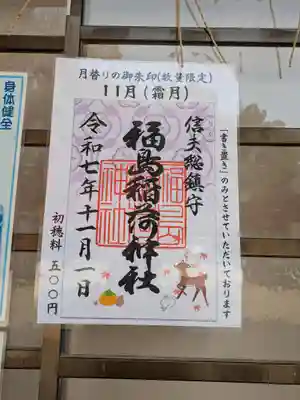 月替りの御朱印(数量限定)
11月(霜月)
信夫総鎮守
福島稲荷神社
令和七年十一月一日
初穂料 五〇〇円
「書き置き」のみとさせていただいております
身体健全